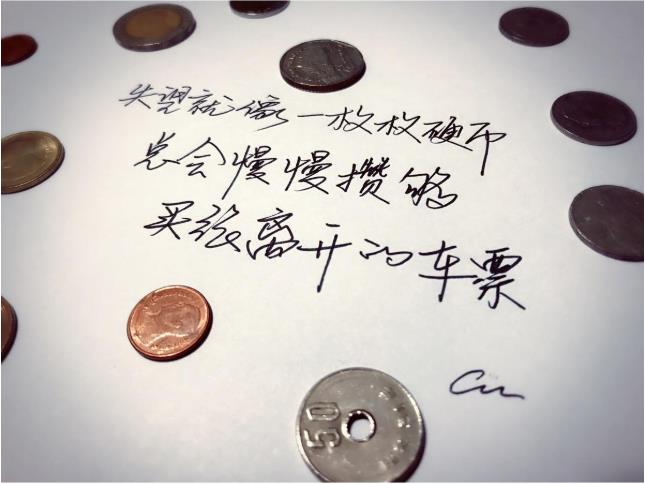 失望就像一枚枚硬币
总会慢慢攒够
买张离开的车票
50